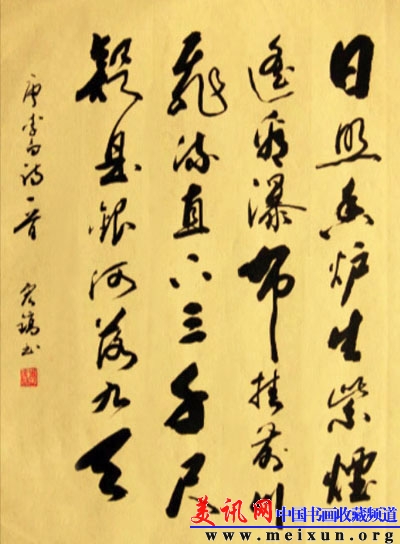 日照香炉生紫煙
遥看瀑布挂前川
飛流直下三千尺
疑是銀河落九天
唐李白詩一首
書
美讯网
中国书画收藏频道
www.meixun.org